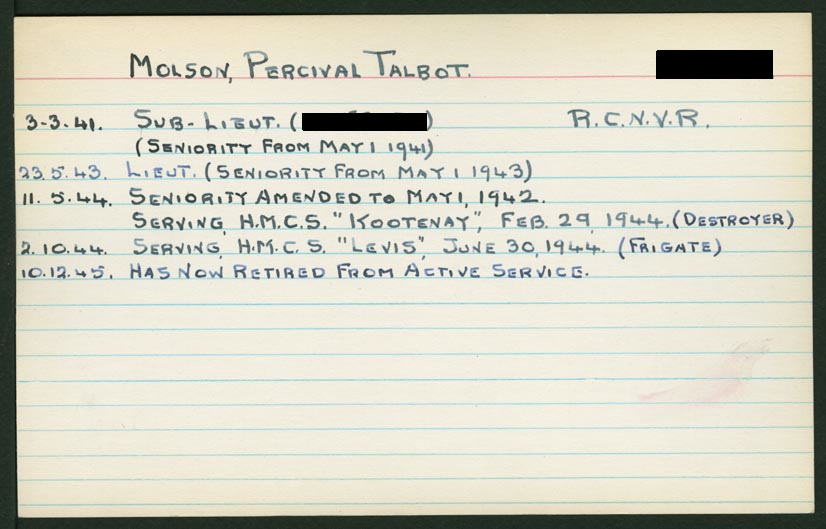 Molson, Percival Talbot.
3-3.41. Sub-Lieut. ( ) R.C.N.V.R.
(Seniority from May 1 1941)
23.5.43. Lieut. (Seniority from May 1 1943)
11.5.44. Seniority Amended to May 1, 1942.
Serving, H.M.C.S. "Kootenay", Feb. 29, 1944. (Destroyer)
2.10.44. Serving, H.M.C.S. "Levis", June 30, 1944. (Frigate)
10.12.45. Has now Retired from Active Service.